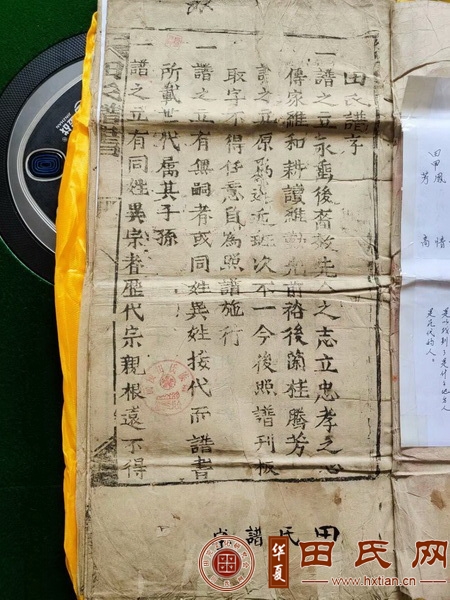 田氏譜字
一譜之立永垂後裔敘先人之志立忠孝之心
傳家雍和耕讀維勤光前裕後蘭桂騰芳
譜之立原為遠近班次不一今後照譜刊板
取字不得任意自為照譜施行
一譜之立有無嗣者或同姓異姓接代而譜書
所載世代屬其子孫
一譜之立有同姓異宗者歷代宗親根遠不得
田氏譜字
田甲鳳
芳
高情
華夏
田氏网
www.hxtian.cn